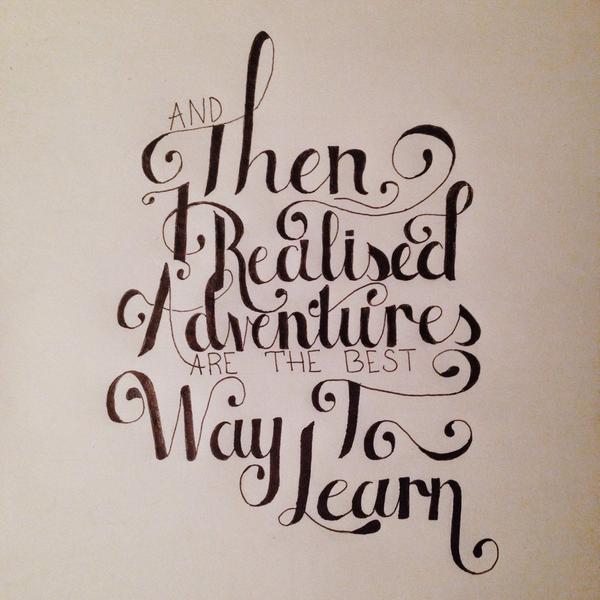 AND
Then
I Realised
Adventures
ARE THE BEST
Way To
Learn